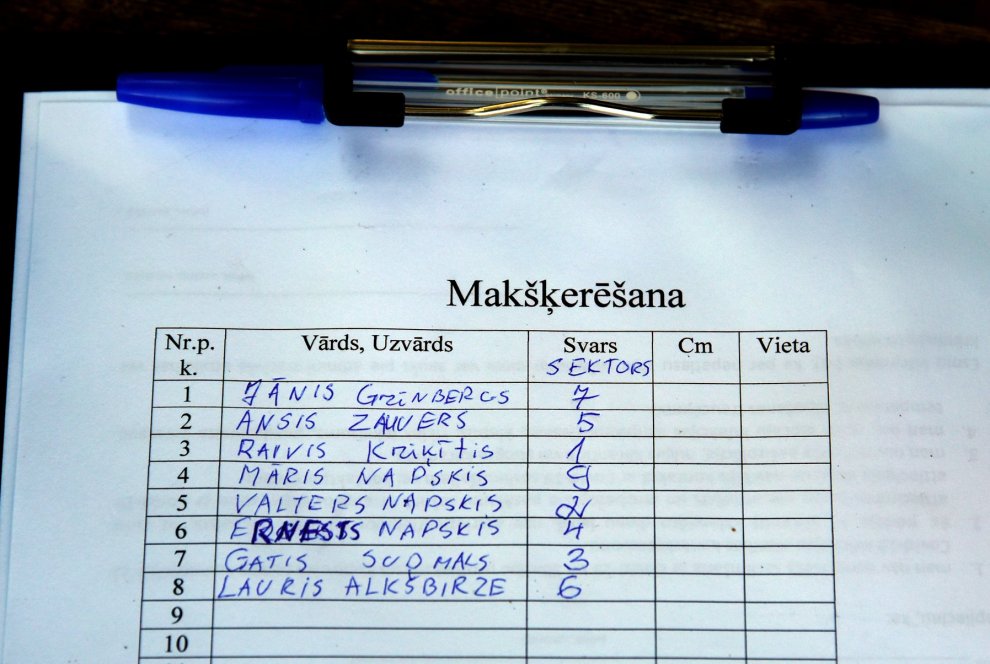 office point KS-600
Makšķerēšana
Nr.p.k. Vārds, Uzvārds Svars SEKTORS Cm Vieta
1 JĀNIS GRĪNBERGS 7
2 ANSIS ZAUVERS 5
3 RAIVIS KRIĶĪTIS 1
4 MĀRIS NAPSKIS 9
5 VALTERS NAPSKIS 2
6 ERNESTS NAPSKIS 4
7 GATIS SUDMALS 3
8 LAURIS ALKŠBIRZE 6
9
10